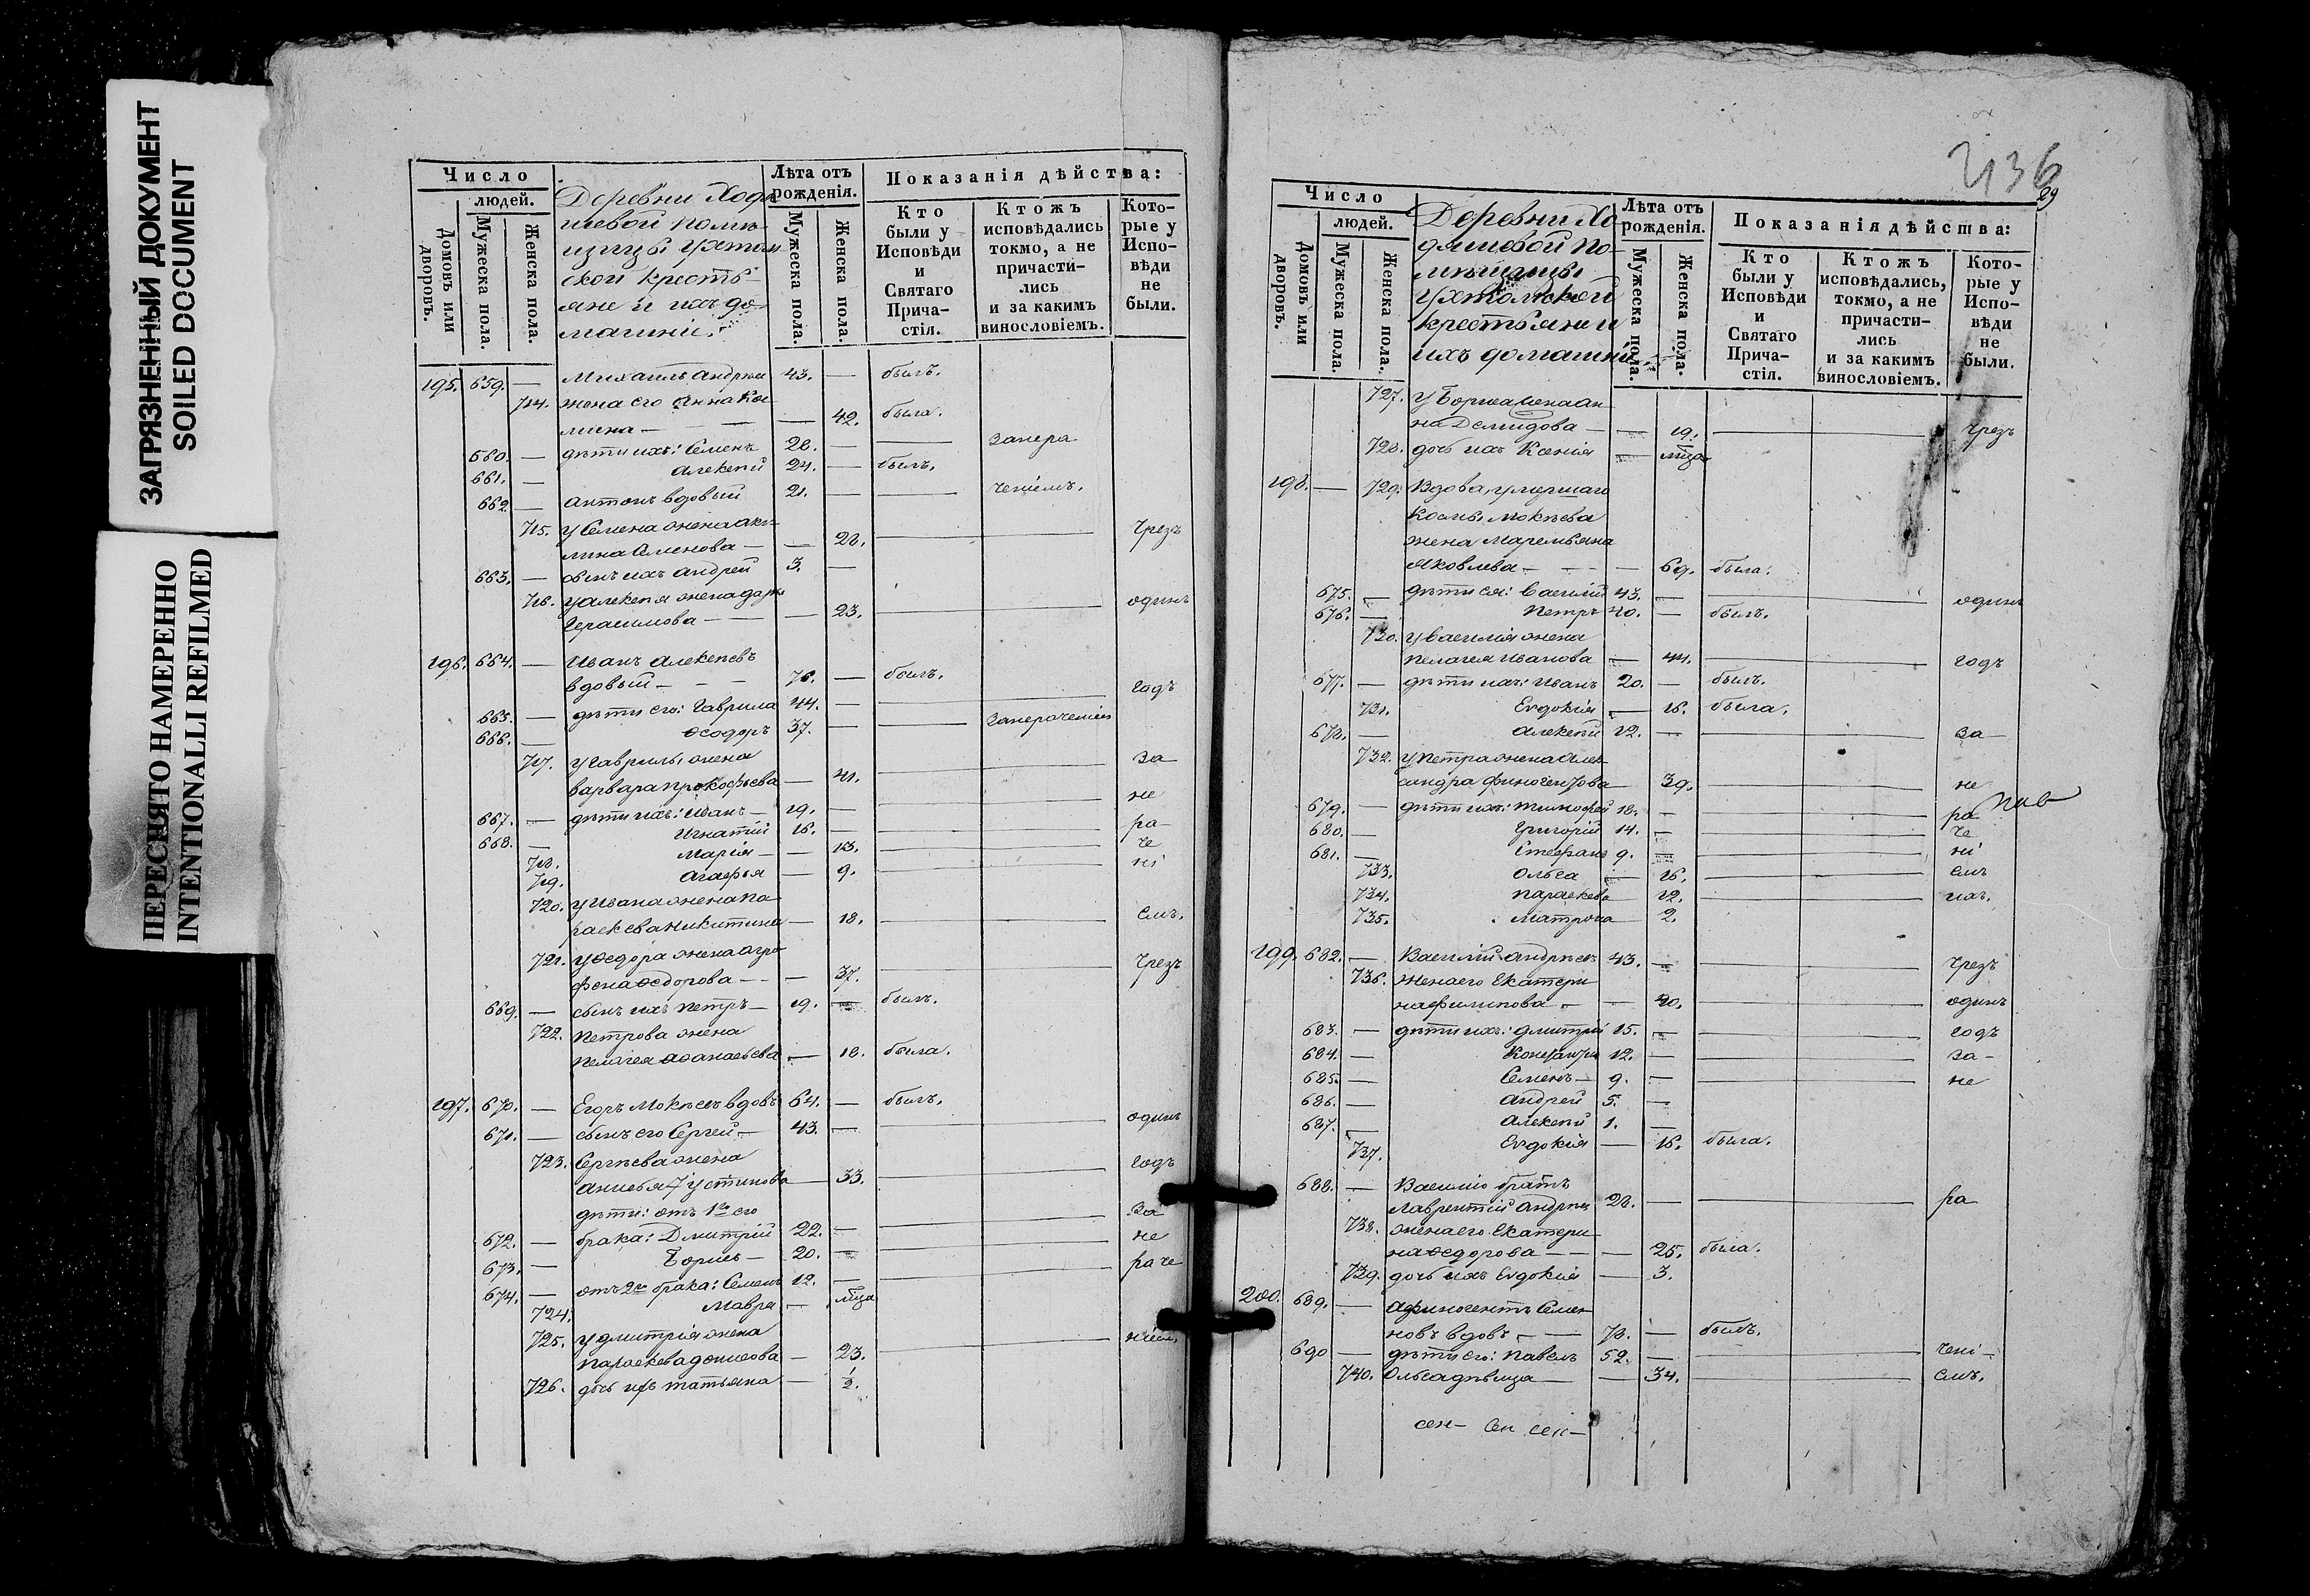 ЗАГРЯЗНЕННЫЙ ДОКУМЕНТ
SOILED DOCUMENT
ПЕРЕСНЯТО НАМЕРЕННО
INTENTIONALLI REFILMED
Число
людей.
Домовъ или дворовъ.
Мужеска пола.
Женска пола.
Деревни Ходя
шевой помѣ
щицы Ухтом
ской кресть-
яне и ихъ до
машніи.
Лѣта отъ рожденія.
Мужеска пола.
Женска пола.
Показанія дѣйства:
Кто были у Исповѣди и Святаго Прича-стія.
Ктожъ исповѣдались токмо, а не причасти-лись и за какимъ винословіемъ.
Кото-рые у Испо-вѣди не были.
195. 659. — Михаилъ Андреевъ 43. — былъ.
714. жена его Анна Кос
мина — — 42. была.
660. — дѣти ихъ: Семенъ 28. — — занера
661. — Алексѣй 24. — былъ.
662. — Антонъ вдовый 21. — — ченіемъ.
715. у Семена жена Аку
лина Семенова — — 28. — чрезъ
663. — сынъ ихъ Андрей 3. —
716. у Алексѣя жена Дарья
Герасимова — — 23. — одинъ
196. 664. — Иванъ Алексѣевъ
вдовый — — 76. — былъ.
665. — дѣти его: Гаврила 44. — — годъ
666. — Ѳеодоръ 37. — — занераченіемъ
717. у Гаврилы жена
Варвара Прокофьева — 41. — за
667. — дѣти ихъ: Иванъ — 19. — не
668. — Игнатій 16. — ра—
718. Марія — — 13. — че
719. Агафья — 9. — ні
720. у Ивана жена Па
раскева Никитина — 18. — емъ.
721. у Ѳедора жена Агра
фена Ѳедорова — — 37. — чрезъ
669. — сынъ ихъ Петръ — 19. — былъ.
722. Петрова жена
Пелагея Аѳанасьева — 18. была.
197. 670. — Егоръ Мокѣевъ вдовъ 64. — былъ.
671. — сынъ его Сергей — 43. — одинъ
723. Сергѣева жена
Анисья Устинова — 33. — годъ
дѣти: отъ 1го его
672. — брака: Дмитрій 22. — за
673. — Борисъ — 20. — не
674. — отъ 2го брака: Семенъ 12. — раче
724. Мавра — мѣсца
725. у Дмитрія жена
Параскева Денисова — 23. — ніемъ.
726. дочь ихъ Татьяна — 1/2.
436
29
Число
людей.
Домовъ или дворовъ.
Мужеска пола.
Женска пола.
Деревни Хо
дяшевой по-
мѣщицы
Ухтомской
крестьяне и
ихъ домашніи.
Лѣта отъ рожденія.
Мужеска пола.
Женска пола.
Показанія дѣйства:
Кто были у Исповѣди и Святаго Прича-стія.
Ктожъ исповѣдались, токмо, а не причасти-лись и за какимъ винословіемъ.
Кото-рые у Испо-вѣди не были.
727. у Бориса жена Ан
на Демидова — — 19. — чрезъ
728. дочь ихъ Ксенія — мѣсца
198. — 729. Вдова, умершаго
Космы Мокѣева
жена Маремьяна
Яковлева — — 69. была.
675. — дѣти ея: Василій 43. — — одинъ
676. — Петръ 40. — былъ.
730. у Василія жена
Пелагея Иванова — 44. — годъ
677. — дѣти ихъ: Иванъ 20. — былъ.
731. Евдокія — 16. была.
678. — Алексѣй 12. — за—
732. у Петра жена Алек
сандра Финогенова — 39. — не
679. — дѣти ихъ: Тимофей 18. — ра
680. — Григорій 14. — че
681. — Стефанъ 9. — ні
733. Ольга — 16. — емъ
734. Параскева — 12. — ихъ.
735. Матрона 2.
199. 682. — Василій Андреевъ 43. — чрезъ
736. Жена его Екатери
на Филипова — — 40. — одинъ
683. — дѣти ихъ: Дмитрій 15. — годъ
684. — 12. — за—
685. — Семенъ — 9. — не
686. — Андрей 5. —
687. — Алексѣй 1. —
737. Евдокія — 16. была.
688. — Василію братъ
Лаврентій Андреевъ 28. — ра
738. жена его Екатери
на Ѳедорова — — 25. была.
739. дочь ихъ Евдокія — 3.
200. 689. — Афиногентъ Семе
новъ вдовъ. — 73. — былъ.
690 — дѣти его: Павелъ 52. — чені—
740. Ольга дѣвица — — 34. — емъ.
сен— сен сен—